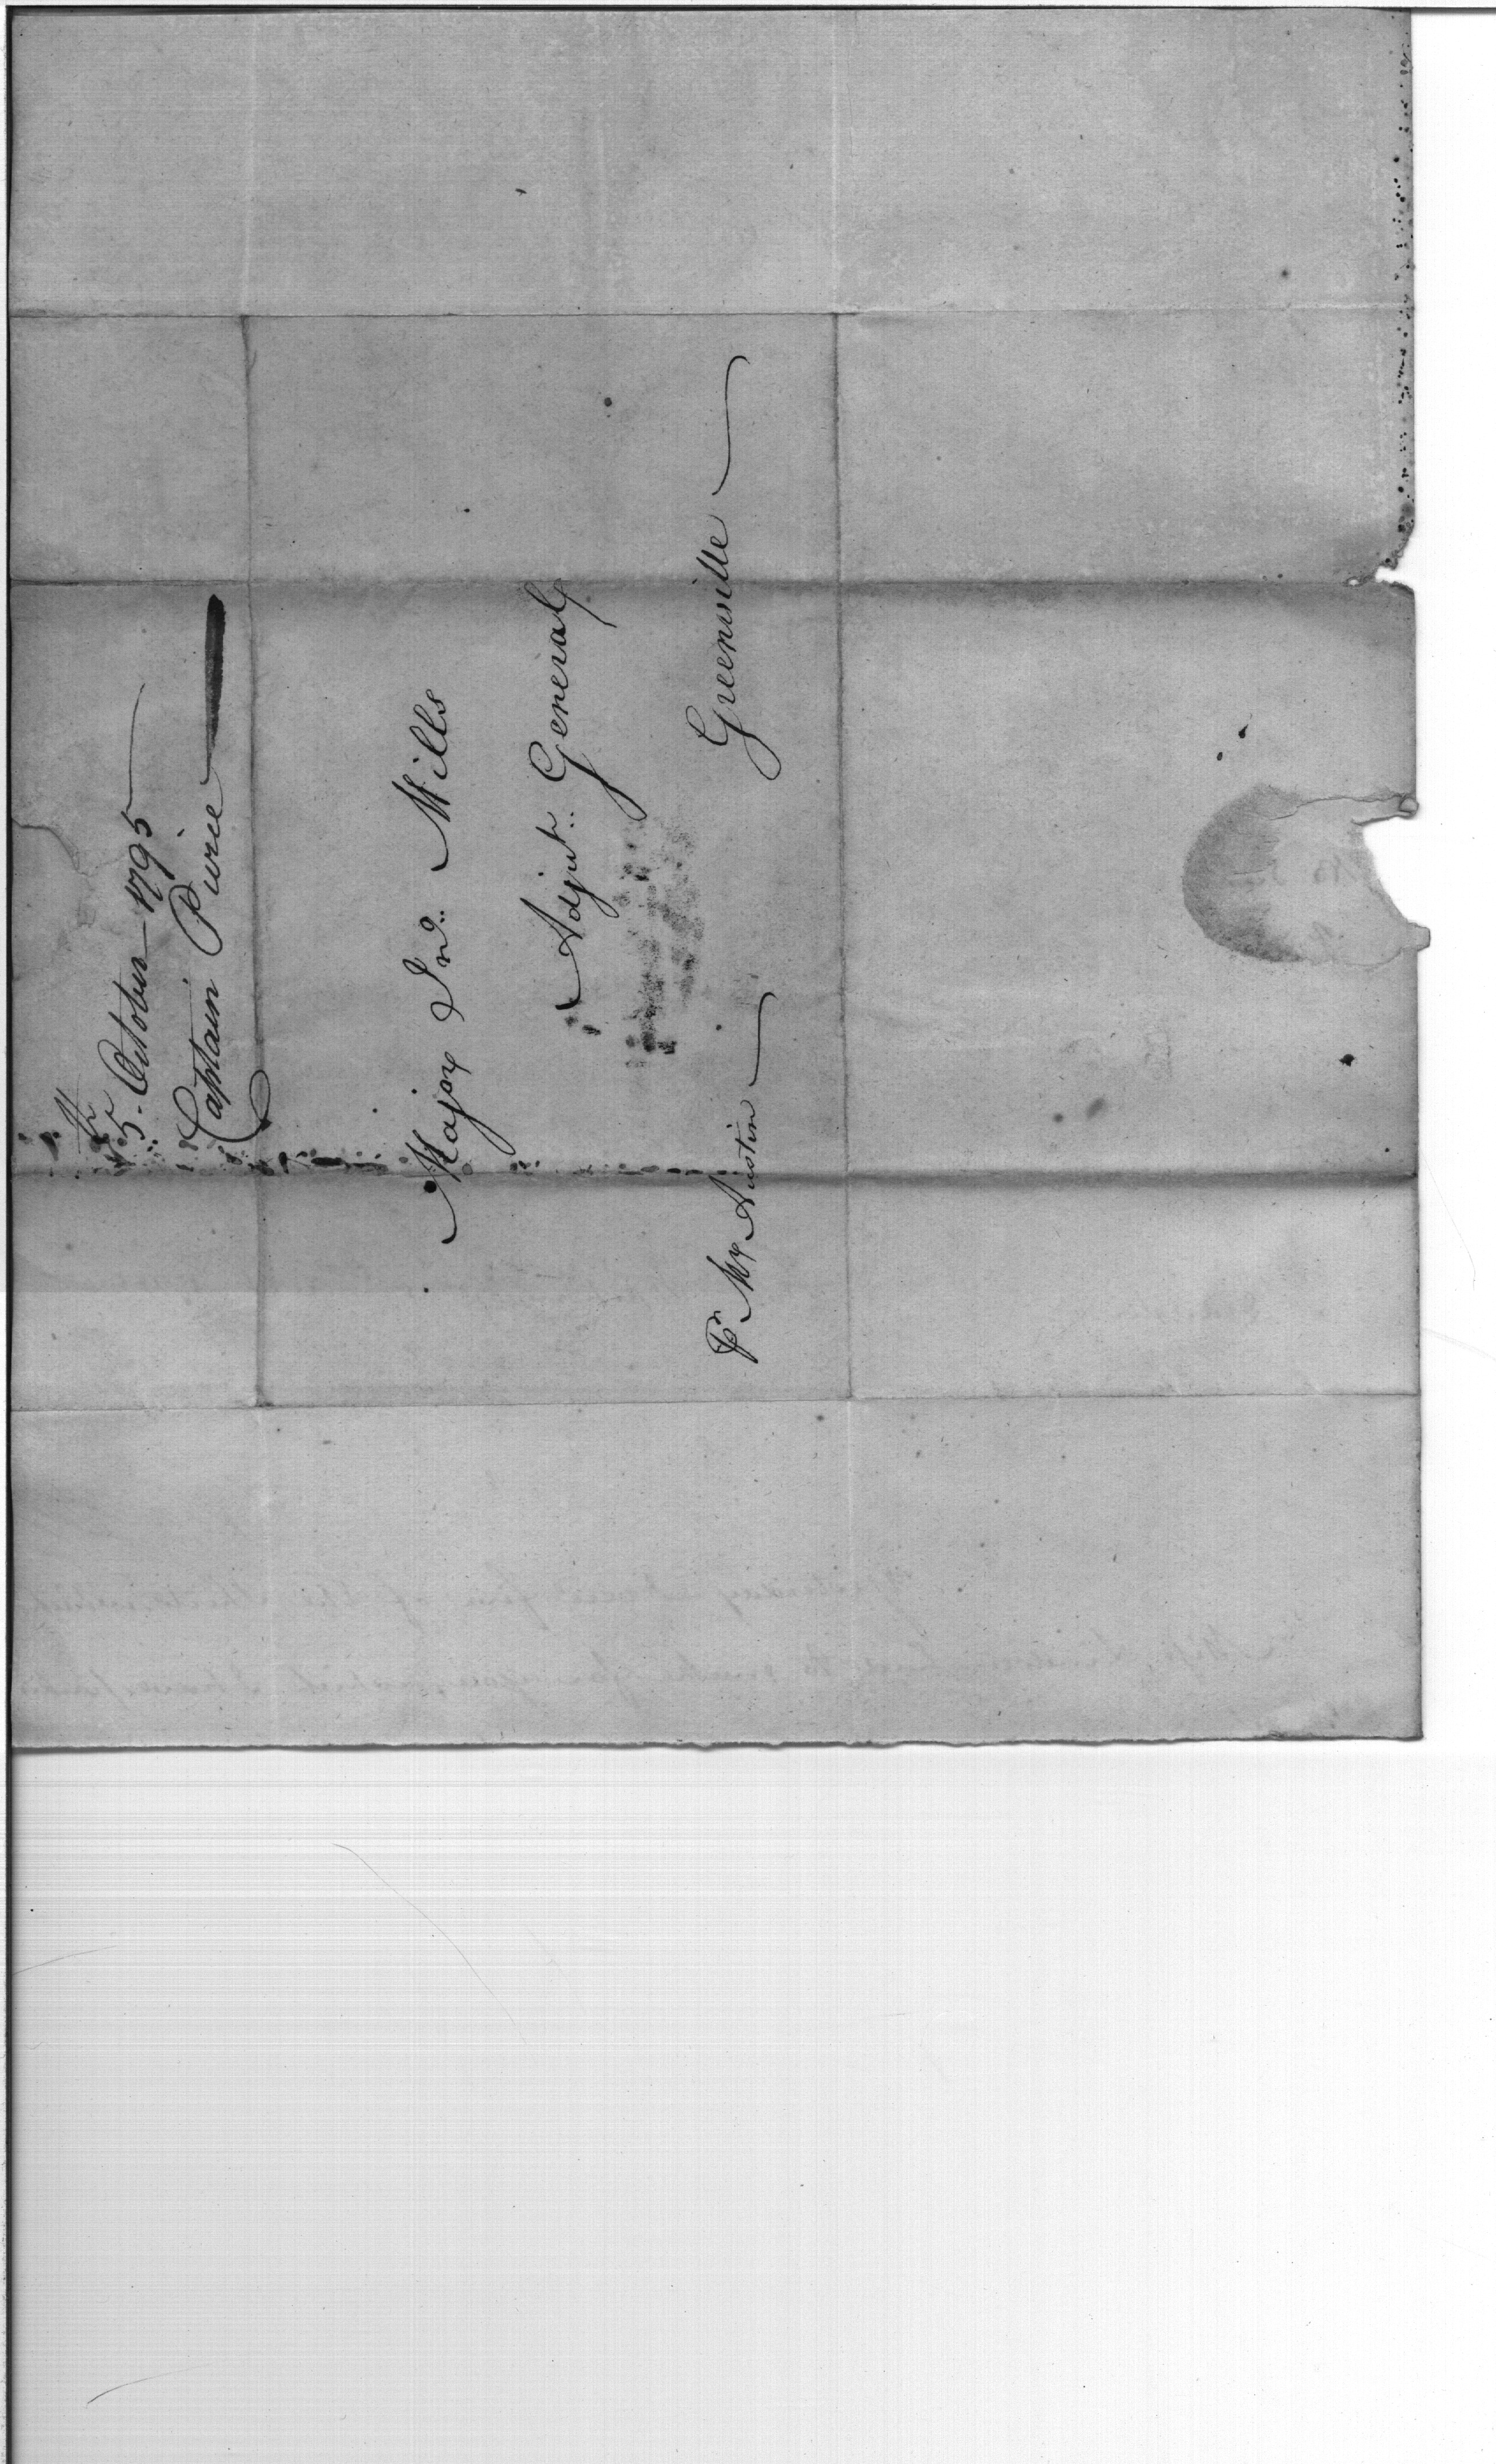 5th October 1795
Captain Peirce
Major Jno. Mills
Adjut. General
Greenville
Pr Mr Austin